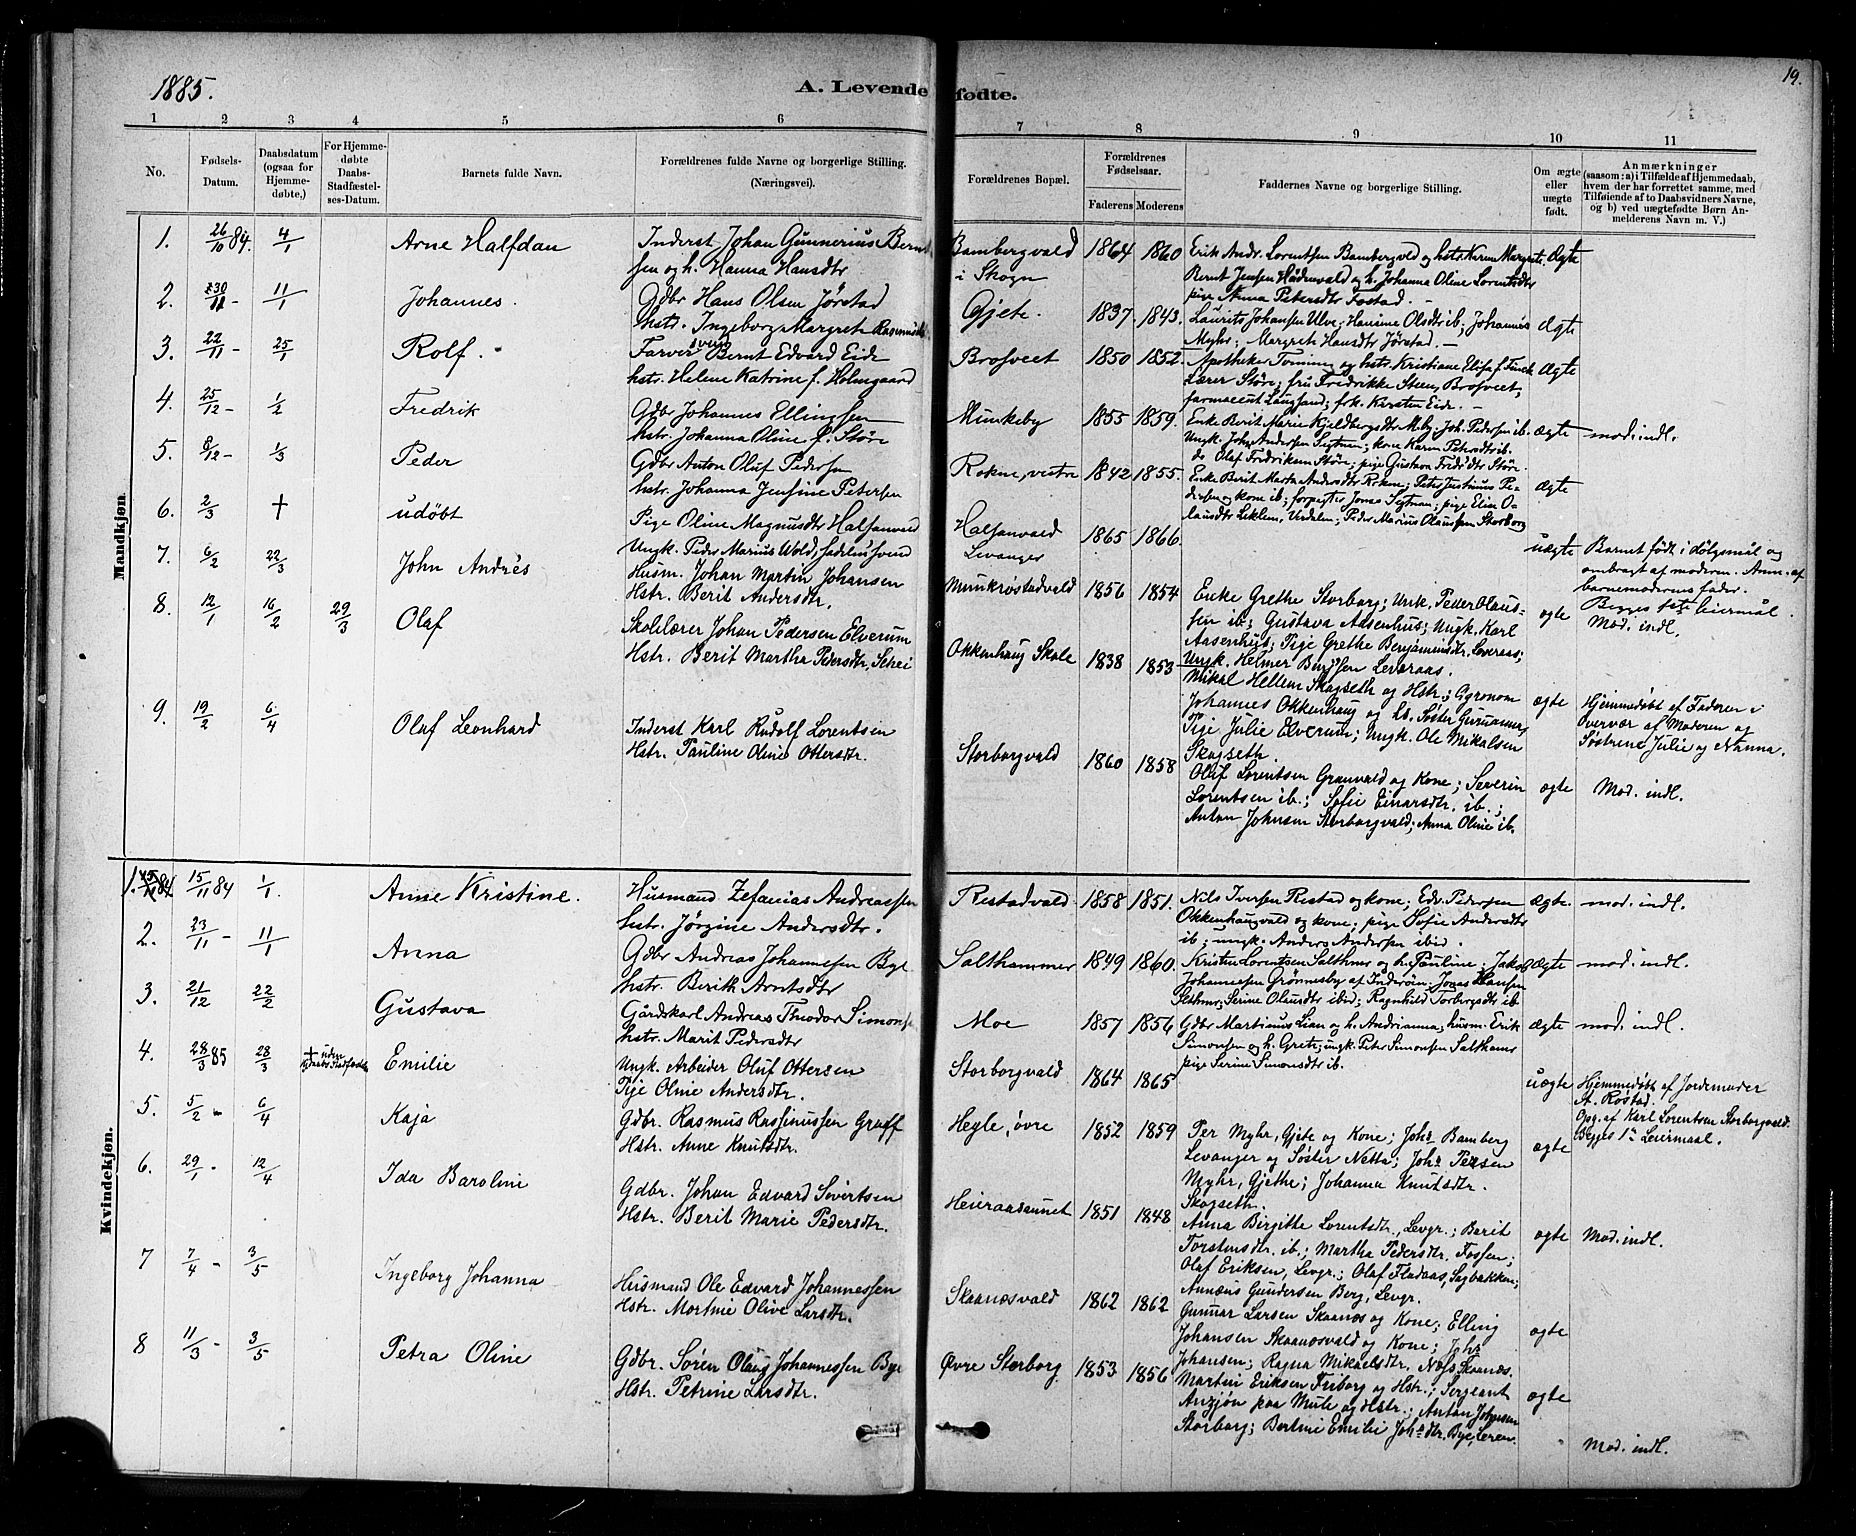 1885.
A. Levende fødte.
19.
1 2 3 4 5 6 7 8 9 10 11
No.
Fødsels-Datum.
Daabsdatum (ogsaa for Hjemmedøbte,)
For Hjemmedøbte Daabs-Stadfæstelses-Datum.
Barnets fulde Navn.
Forældrenes fulde Navne og borgerlige Stilling. (Næringsvei).
Forældrenes Bopæl.
Forældrenes Fødselsaar.
Faderens Moderens
Faddernes Navne og borgerlige Stilling.
Om ægte eller uægte født.
Anmærkninger
(saasom: a) i Tilfælde af Hjemmedaab, hvem der har forrettet samme, med Tilføiende af to Daabsvidners Navne, og b) ved uægtefødte Børn Anmelderens Navn m. V.)
Mandkjøn.
1. 26/10 84. 4/1 Arne Halfdan
Inderst Johan Gunnerius Berntsen og h. Hanna Hansdtr
Bambergvald i Skogn 1864 1860
Erik Andr. Lorentsen Bambergvld og hstr Karen Margrete.
Bernt Jensen Hådenvald og h. Johanna Oline Lorentsdtr
pige Anna Petersdtr Fostad.
Ægte
2. 30/11 - 11/1 Johannes.
Gdbr Hans Olsen Jørstad
hstr. Ingeborg Margrete
Gjete. 1837 1843.
Laurits Johansen Ulve; Hansine Olsdtr ib; Johannes
Myhr; Margrete Hansdtr Jørstad.
Ægte
3. 22/11 - 25/1 Rolf.
Farversvend Bernt Edvard Eide
hstr. Helene Katrine f. Holmgaard
Brosveet 1850 1852.
Apotheker Tonning og hstr. Kristiane Elisa f. Finck
Lærer Störe; fru Fredrikke Steen, Brosveet;
farmaceut Laugsand; frk. Kirsten Eide.
Ægte
4. 25/12 - 1/2 Fredrik
Gdbr Johannes Ellingsen
hstr. Johanna Oline f. Störe
Munkeby 1855 1859.
Enke Berit Marie Kjeldbergsdtr Mkby. Joh. Pedersen ib.
Ungk. Johs Andersen Segtnan; kone Karen Petersdtr ib.
do Olaf Fredriksen Störe; pige Gustava Fredsdtr Störe.
ægte mod. indl.
5. 8/12 - 1/3 Peder
Gdbr Anton Oluf Pedersen
hstr. Johanna Jensine Petersen
Rokne, vestre 1842 1855.
Enke Berit Marta Andersdtr Rokne; Peter Justinus Pedersen og kone ib; forpagter Jonas Segtnan; pige Elen Olausdtr Leklem, Verdalen; Peder Marius Olaussen Storborg
ægte
6. 2/3 † udøbt
Pige Oline Magnusdtr Halsanvald
Ungk. Peder Marius Wold, sadelm.svend
Halsanvald Levanger 1865 1866.
uægte
Barnet født i dølgsmål og
ombragt af moderen. Anm. af
barnemoderens fader.
Begges 1ste leiermål.
7. 6/2 22/3 John Andrés
Husm. Johan Martin Johansen
Hstr. Berit Andersdtr.
Munkrøstadvald 1856 1854
Enke Grethe Storborg; Unk. Peder Olaussen ib; Gustava Aasenhus; Ungk. Karl
Aasenhus; Pige Grethe Benjaminsdtr. Leveraas;
Ungk. Helmer Berntsen Leveraas.
ægte Mod. indl.
8. 12/1 16/2 29/3 Olaf
Skolelærer Johan Pedersen Elverum
Hstr. Berit Martha Pedersdtr, Schei
Okkenhaug Skole 1838 1853
Mikal Hellem Skogseth og Hstr.; Agronom
Johannes Okkenhaug og hs. Søster Gurianna;
Pige Julie Elverum; Ungk. Ole Mikalsen
Skogseth.
ægte
Hjemmedøbt af Faderen i
Overvær af Moderen og
Søstrene Julie og Nanna.
9. 19/2 6/4 Olaf Leonhard
Inderst Karl Rudolf Lorentsen
Hstr. Pauline Oline Ottersdtr.
Storborgvald 1860 1858
Oluf Lorentsen Granvald og Kone; Severin
Lorentsen ib.; Sofie Einarsdtr. ib.;
Anton Johnsen Storborgvald; Anna Oline ib.
ægte Mod. indl.
Kvindekjøn.
1. 15/11 84 15/11 84 1/1. Anne Kristine.
Husmand Zefanias Andreassen
hstr. Jørgine Andersdtr.
Restadvald 1858 1851.
Nils Iversen Restad og kone; Edv. Pedersen
Okkenhaugvald og kone; pige Sofie Andersdtr
ib; ungk. Anders Andersen ibid.
ægte. mod. indl.
2. 23/11 - 11/1 Anna
Gdbr Andreas Johannesen Bye
hstr. Berith Arntsdtr
Salthammer 1849 1860.
Kristen Lorentsen Salthmr og h. Pauline; Jakob
Johannesen Grønnesby af Inderøen; Jonas Hansen
Slthmr; Serine Olausdtr ibid; Ragnhild Torbergsdtr ib
ægte mod. indl.
3. 21/12 22/2 Gustava
Gårdskarl Andreas Theodor Simonsen
hstr. Marit Pedersdtr
Moe 1857 1856
Gdbr Martinus Lian og h. Andrianna; husm. Erik
Simonsen og h. Grete; ungk. Peter Simonsen Salthamr
pige Serine Simonsdtr ib.
ægte mod. indl.
4. 28/3 85 28/3 † uden Emilie
Ungk. Arbeider Oluf Ottersen
Pige Oline Andersdtr.
Storborgvald 1864 1865
uægte
Hjemmedøbt af Jordemoder
A. Røstad.
Opg. af Karl Lorentsen Storborgvald.
Begges 1ste Leiermaal.
5. 5/2 - 6/4 Kaja
Gdbr. Rasmus Rasmussen Graff
Hstr. Anne Knutsdtr.
Hegle, øvre 1852 1859
Per Myhr, Gjete og Kone; Johs Bamberg
Levanger og Søster Netta; Johs Persen
Myhr, Gjethe; Johanna Knutsdtr.
Skogseth.
ægte
6. 29/1 - 12/4 Ida Baroline
Gdbr. Johan Edvard Sivertsen
Hstr. Berit Marie Pedersdtr.
Heieraasunnet 1851 1848
Anna Birgitte Lorentsdtr., Levgr.; Berit
Torstensdtr. ib.; Martha Pedersdtr. Fossen;
Olaf Eriksen, Levgr.; Olaf Fladaas, Sagbakken;
Annæus Gundersen Berg, Levgr.
ægte Mod. indl.
7 7/4 - 3/5 Ingeborg Johanna
Husmand Ole Edvard Johannessen
Hstr. Martine Olive Larsdtr.
Skaanæsvald 1862 1862
Gunnar Larsen Skaanæs og Kone; Elling
Johansen Skaanæsvald og Kone; Johs
Johansen; Ragna Mikaelsdtr. Næss Skaanæs.
ægte
8 11/3 - 3/5 Petra Oline
Gdbr. Sören Olaus Johannessen Bye
Hstr. Petrine Larsdtr.
Øvre Storborg 1853 1856
Martin Eriksen Friborg og Hstr.; Sergeant
Anzjön paa Mule og Hstr.; Anton Johnsen
Storborg; Bertine Emilie Johsdtr. Bye,
ægte
Mod. indl.